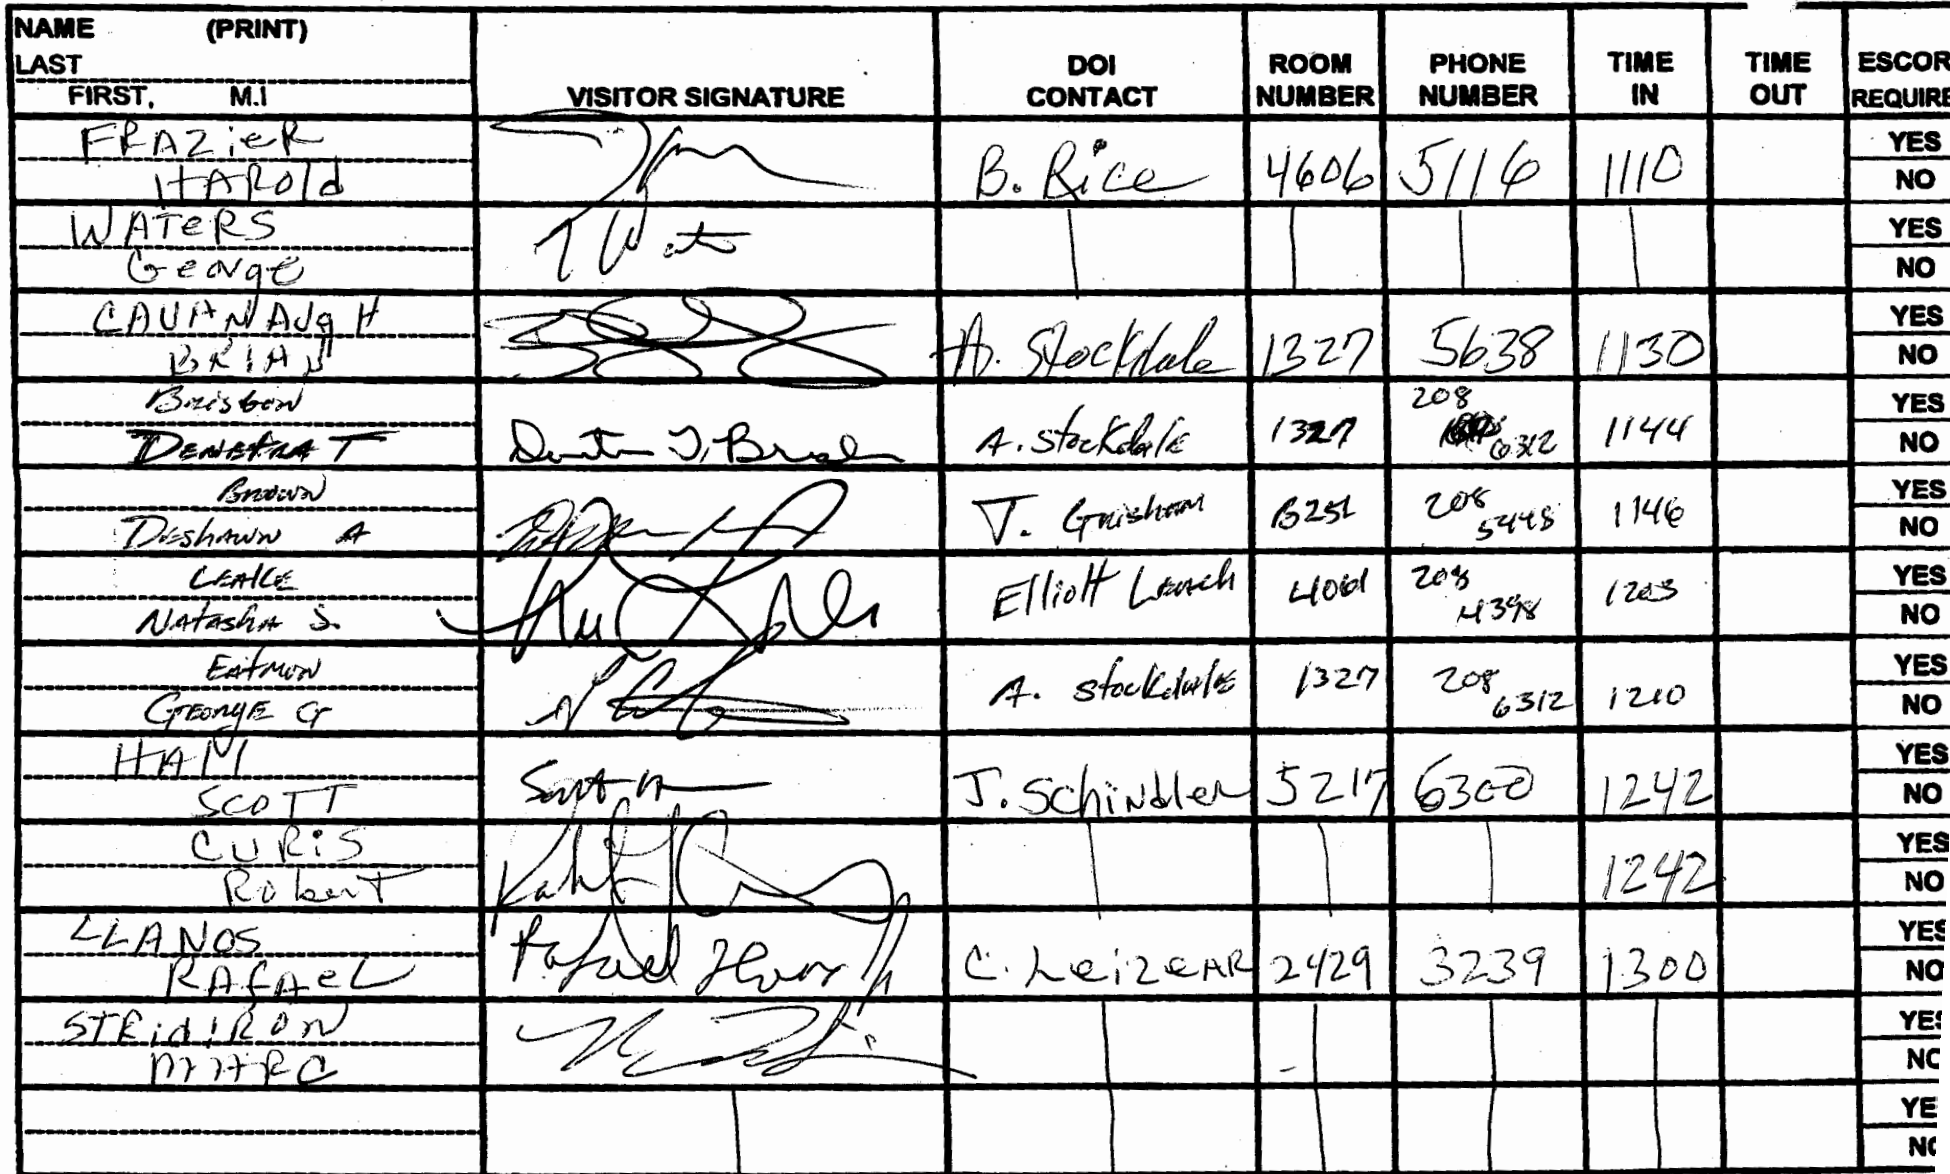 NAME (PRINT)
LAST
FIRST, M.I
VISITOR SIGNATURE
DOI CONTACT
ROOM NUMBER
PHONE NUMBER
TIME IN
TIME OUT
ESCOR
REQUIRE
FRAZieR
HARold
B. Rice 4606 5116 1110
YES
NO
WATeRS
George
YES
NO
CAVANAugH
BRIAN
A. Stockdale 1327 5638 1130
YES
NO
Brisbon
A. Stockdale 1327 208 6312 1144
YES
NO
Brown
Deshawn A
T. Grisham 208 5448 1146
YES
NO
Leake
Natasha S.
Elliott 208 4398 1203
YES
NO
Eatmon
George G
A. Stockdale 1327 208 6312 1210
YES
NO
HAM
SCOTT
J. Schindler 5217 6300 1242
YES
NO
CURiS
Robert
1242
YES
NO
LLANOS
RAfAeL
Rafael
C. LeizeAR 2429 3239 1300
YES
NO
STRidiRON
MARC
YES
NO
YE
NO